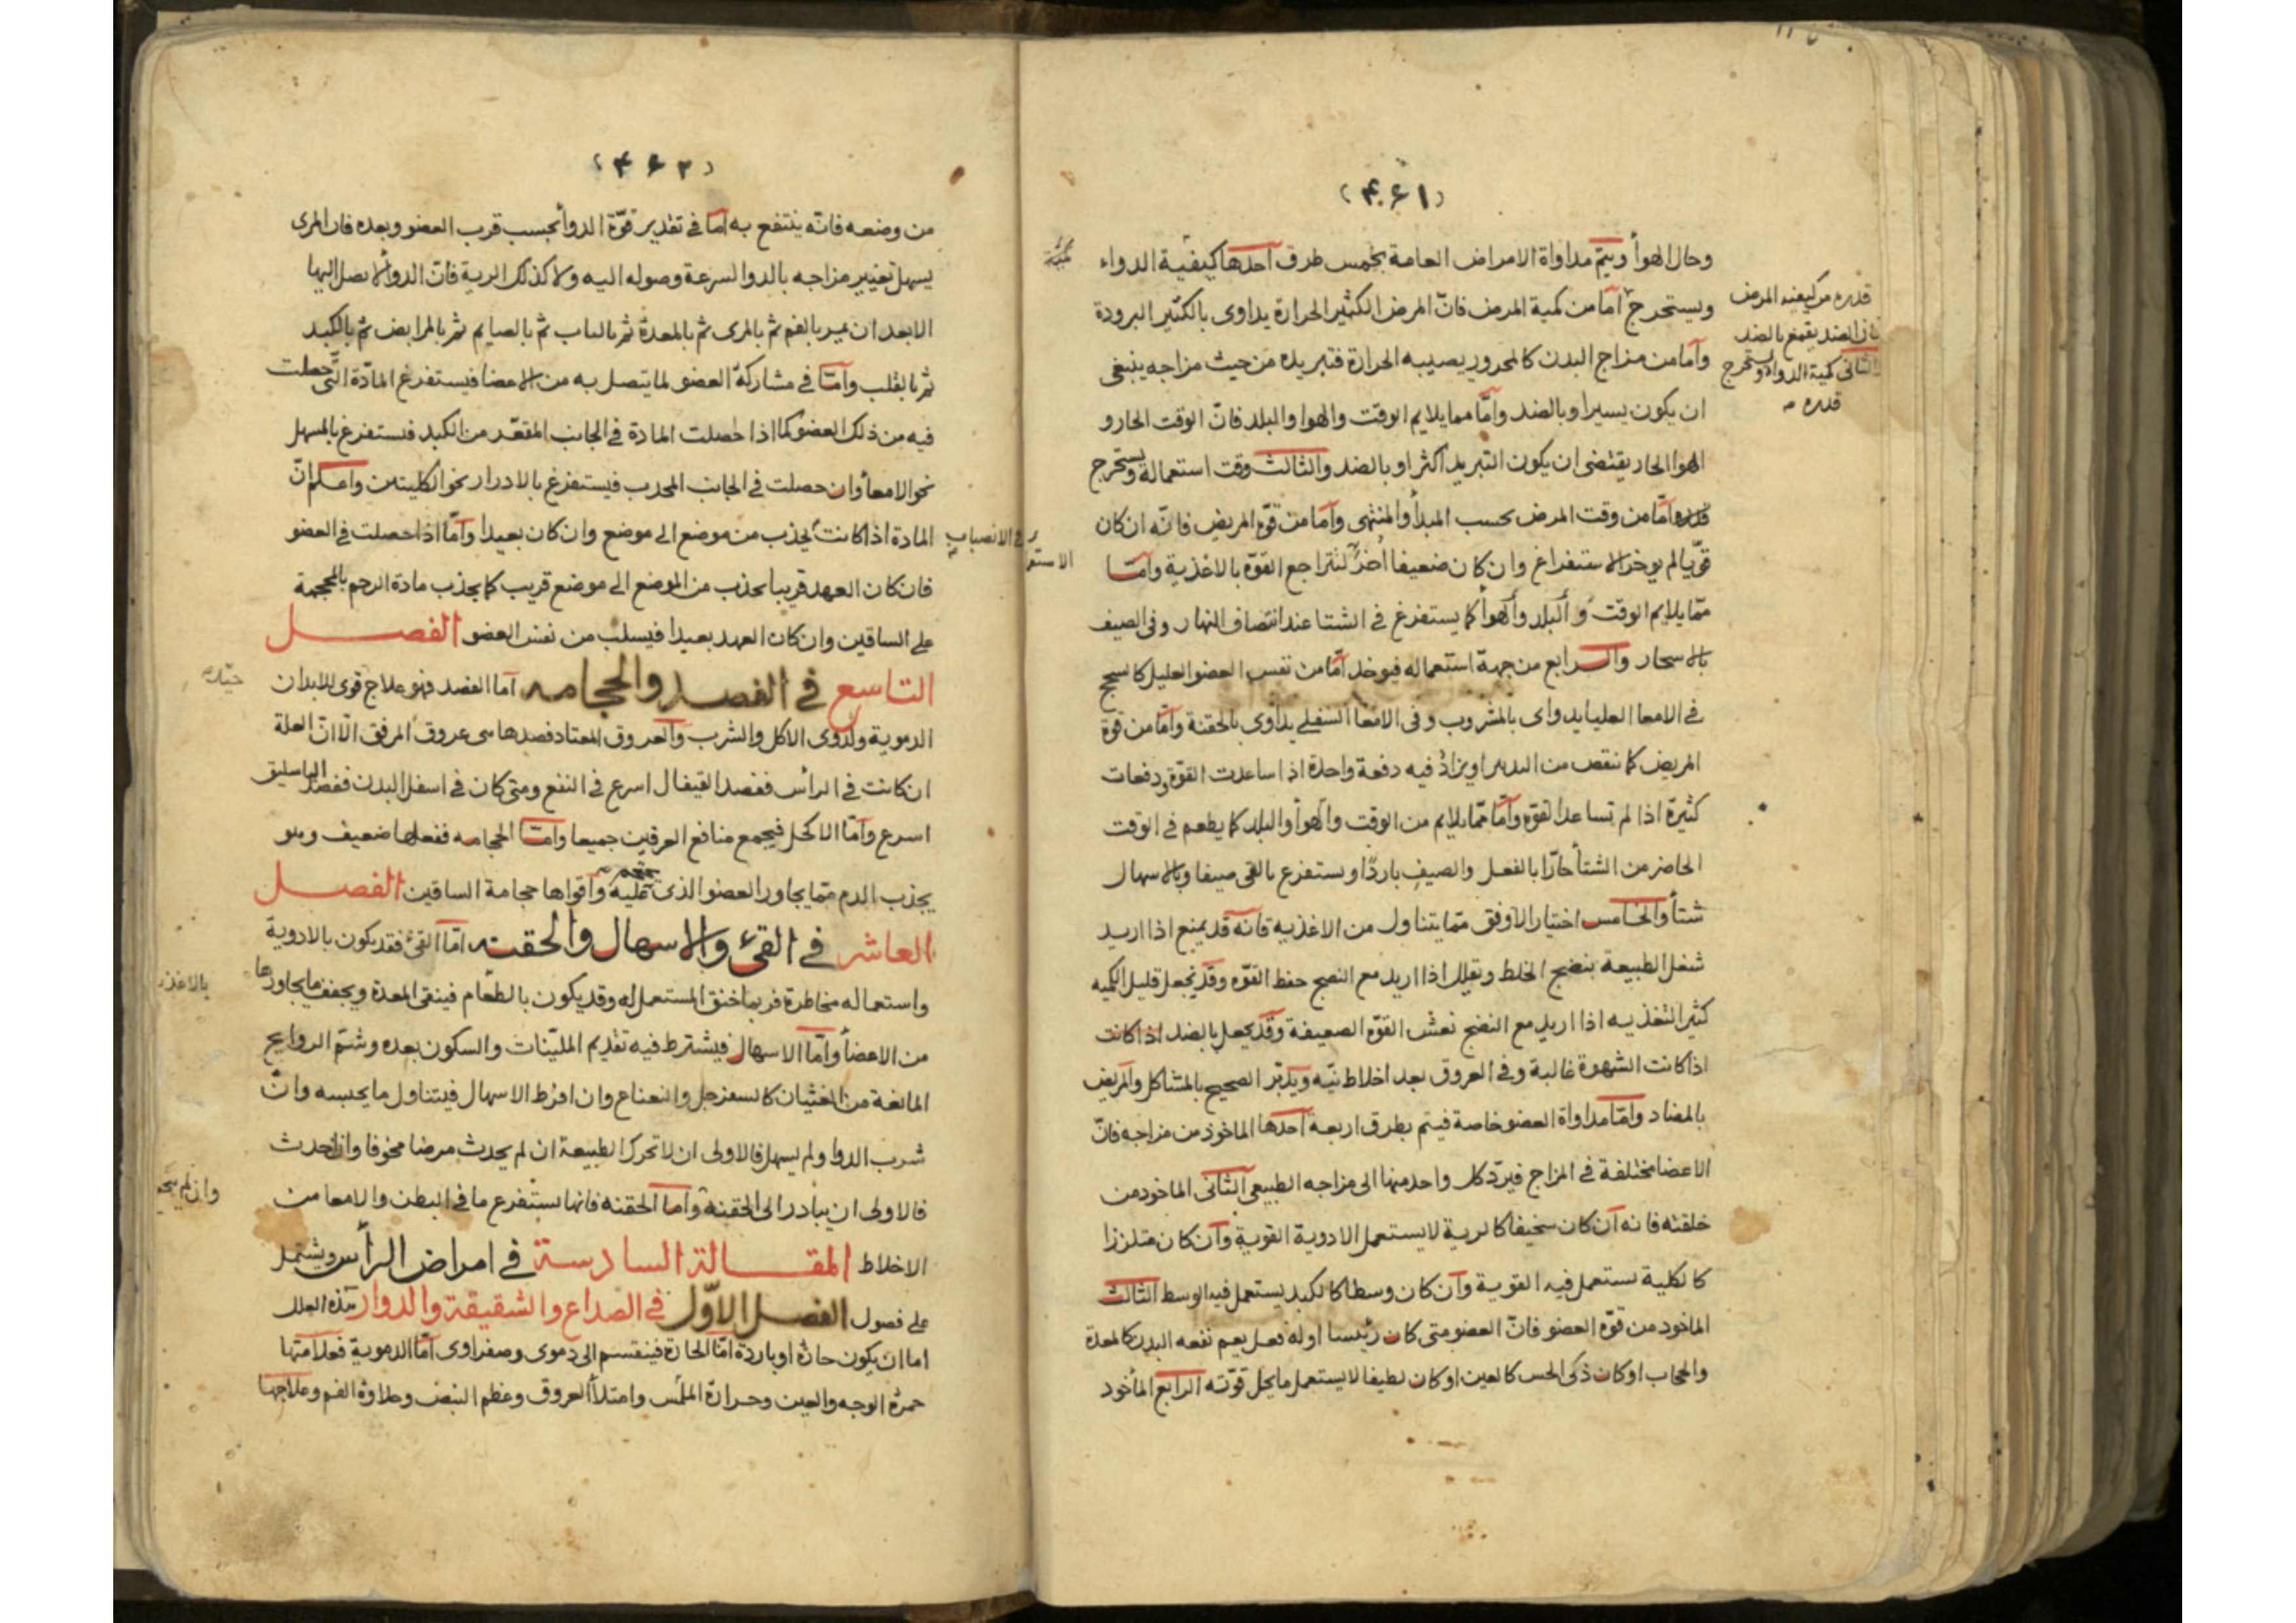 (۴۶۱)
وحال الهوأ ويتم مداواة الامراض العامة بخمس طرق احدها كيفية الدواء
ويستخرج امّا من كمية المرض فانّ المرض الكثير الحرارة يداوى بالكثير البرودة
وأما من مزاج البدن كالمحرور يصيبه الحرارة فتبريده من حيث مزاجه ينبغى
ان يكون يسيرا وبالضد وأمّا مما يلايم الوقت والهوا والبلد فانّ الوقت الحار و
الهوا الحار يقتضى ان يكون التبريد اكثر او بالضد والثالث وقت استعماله ويستخرج
قدره امّا من وقت المرض بحسب المبدأ والمنتهى وأما من قوّة المريض فانّه ان كان
قويّا لم يوخر الاستفراغ وان كان ضعيفا أخرّ لتتراجع القوّة بالاغذية وامّا
ممّا يلايم الوقت والبلد والهوأ كما يستفرغ فى الشتا عند انتصاف النهار وفى الصيف
بالاسحار والرابع من جهة استعماله فيوخد امّا من نفس العضو العليل كالسحج
فى الامعا العليا يداوى بالمشروب وفى الامعا السفلى يداوى بالحقنة وأمّا من قوة
المريض كما ننقص من البدن او يزاد فيه دفعة واحدة اذا ساعدت القوّة ودفعات
كثيرة اذا لم تساعد القوّة وأمّا ممّا يلايم من الوقت والهوأ والبلد كما يطعم فى الوقت
الحاضر من الشتأ حارّا بالفعل والصيف باردّا ويستفرغ بالقى صيفا وبالاسهال
شتأ والخامس اختيار الاوفق ممّا يتناول من الاغذية فانه قد يمنع اذا اريد
شغل الطبيعة بنضج الخلط وتقلل اذا اريد مع النضج حفظ القوّة وقد يجعل قليل الكميه
كثير التغذيه اذا اريد مع النضج نعش القوّة الضعيفة وقد يجعل بالضد اذا كانت
اذا كانت الشهوة غالبة وفى العروق بعد اخلاط نيّه ويدبّر الصحيح بالمشاكل والمريض
بالمضاد وامّا مداواة العضو خاصة فيتم بطرق اربعة احدها الماخوذ من مزاجه فانّ
الاعضا مختلفة فى المزاج فيردّ كل واحد منها الى مزاجه الطبيعى الثانى الماخود من
خلقته فانه ان كان سخيفا كالرية لا يستعمل الادوية القوية وان كان متلززا
كالكلية يستعمل فيه القوية وان كان وسطا كالكبد يستعمل فيه الوسط الثالث
الماخود من قوّة العضو فانّ العضو متى كان رئيسا او له فعل يعم نفعه البدن كالمعدة
والحجاب او كان ذكى الحس كالعين او كان لطيفا لا يستعمل ما يحل قوّته الرابع المأخود
قدره من كيفيه المرض
فان الضد يقمع بالضد
الثانى كمية الدوا ويستخرج
قدره
(۴۶۲)
من وضعه فانّه ينتفع به امّا فى تقدير قوّة الدوأ بحسب قرب العضو وبعده فان المرى
يسهل تغيير مزاجه بالدوا لسرعة وصوله اليه ولا كذلك الرية فانّ الدوأ لا يصل اليها
الا بعد ان يمر بالفم ثم بالمرى ثم بالمعدة ثم بالباب ثم بالصايم ثم بالمرابض ثم بالكبد
ثم بالقلب وأمّا فى مشاركة العضو لما يتصل به من الاعضا فيستفرغ المادّة التّى حصلت
فيه من ذلك العضو كما اذا حصلت المادة فى الجانب المقعّر من الكبد فستفرغ بالمسهل
نحو الامعأ وان حصلت فى الجانب المحدب فيستفرغ بالادرار نحو الكليتين واعلم انّ
المادة اذا كانت يجذب من موضع الى موضع وان كان بعيدا وأمّا اذا حصلت فى العضو
فى الانصباب
فان كان العهد قريبا يحذب من الموضع الى موضع قريب كما يجذب مادة الرحم بالمحجمة
على الساقين وان كان العهد بعيدا فيسلب من نفس العضو الفصل
التاسع فى الفصد والحجامه أما الفصد فهو علاج قوى للابدان
الدموية ولذوى الاكل والشرب والعروق المعتاد فصدها سى عروق المرفق الّا انّ العلة
ان كانت فى الرأس ففصد القيفال اسرع فى النفع ومتى كان فى اسفل البدن ففصد الباسليق
اسرع وأمّا الاكحل فيجمع منافع العرقين جميعا وامّا الحجامه ففعلها ضعيف وهو
يجذب الدم ممّا يجاور العضو الذى عليه وأقواها حجامة الساقين الفصل
العاشر فى القئ والاسهال والحقنه امّا القئ فقد يكون بالادوية
واستعماله مخاطرة فربما خنق المستعمل له وقد يكون بالطعام فينقى المعدة ويجفف ما يجاورها
من الاعضأ وامّا الاسهال فيشترط فيه تقديم المليّنات والسكون بعده وشمّ الروايح
المانعة من الغثيان كالسفرجل والنعناع وان افرط الاسهال فيتناول ما يحبسه وانّ
شرب الدوا ولم يسهل فالاولى ان لا تحرك الطبيعة ان لم يحدث مرضا مخوفا وان احدث
فالاولى ان يبادر الى الحقنة وأما الحقنه فانها يستفرع ما فى البطن والامعا من
الاخلاط المقالة السادسة فى امراض الرأس ويشتمل
على فصول الفصل الاوّل فى الصداع والشقيقة والدوار هذه العلل
اما ان يكون حارّة او باردة امّا الحارة فينقسم الى دموى وصفراوى امّا الدموية فعلامتها
حمرة الوجه والعين وحرارة الملمس وامتلأ العروق وعظم النبض وحلاوة الفم وعلاجها